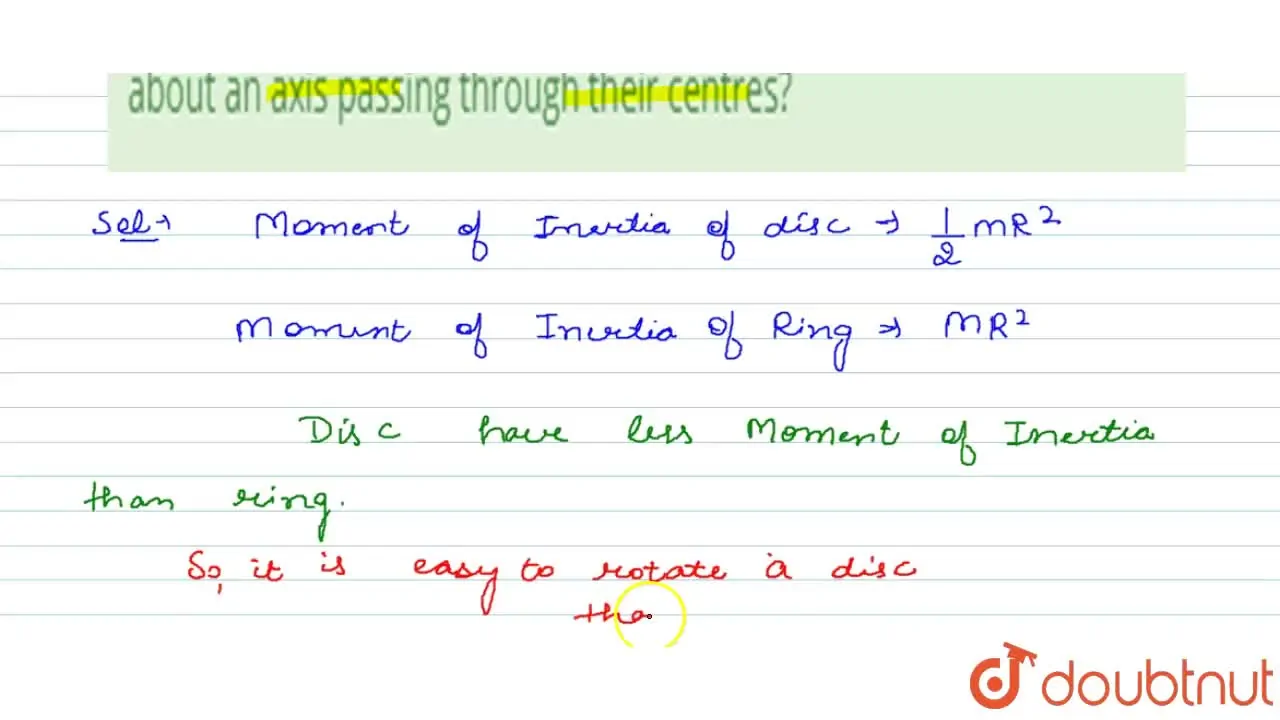 about an axis passing through their centres?
Sol→ Moment of Inertia of disc → 1/2 MR²
Moment of Inertia of Ring → MR²
Disc have less Moment of Inertia
than ring.
So, it is easy to rotate a disc
tha
doubtnut